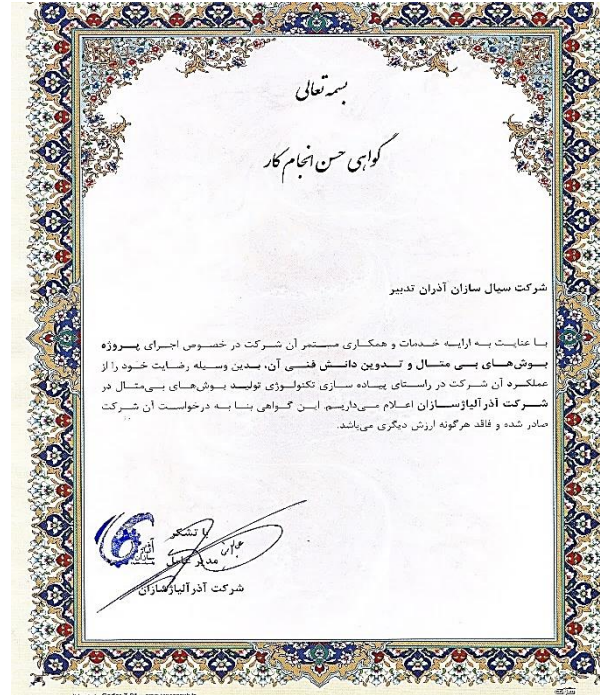 بسمه تعالی
گواهی حسن انجام کار
شرکت سیال سازان آذران تدبیر
با عنایت به ارایه خدمات و همکاری مستمر آن شرکت در خصوص اجرای پروژه
بوش‌های بی متال و تدوین دانش فنی آن، بدین وسیله رضایت خود را از
عملکرد آن شرکت در راستای پیاده سازی تکنولوژی تولید بوش‌های بی‌متال در
شرکت آذرآلیاژسازان اعلام می‌داریم. این گواهی بنا به درخواست آن شرکت
صادر شده و فاقد هرگونه ارزش دیگری می‌باشد.
با تشکر
مدیر عامل
شرکت آذرآلیاژسازان